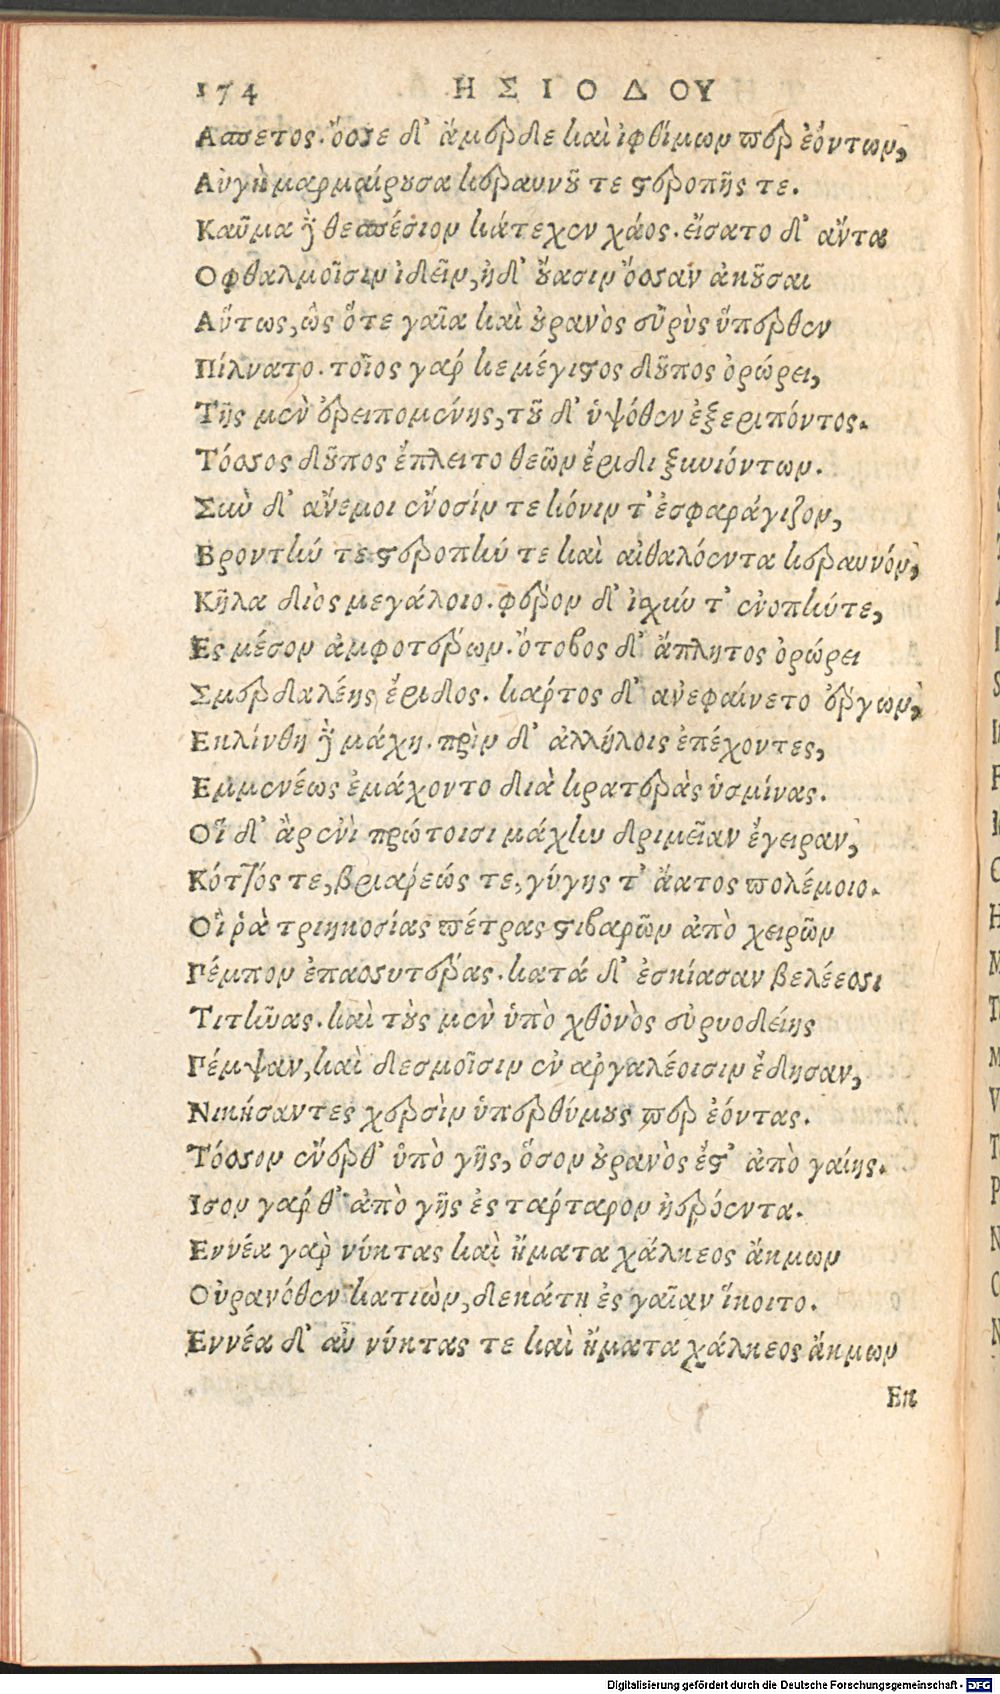 174 ΗΣΙΟΔΟΥ
Ασπετος. ὄσσε δ' ἄμερδε καὶ ἰφθίμων περ ἐόντων,
Αὐγὴ μαρμαίρουσα κεραυνοῦ τε στεροπῆς τε.
Καῦμα δὲ θεσπέσιον κάτεχεν χάος. εἴσατο δ' ἄντα
Οφθαλμοῖσιν ἰδεῖν, ἠδ' οὔασιν ὄσσαν ἀκοῦσαι
Αὔτως, ὡς ὅτε γαῖα καὶ οὐρανὸς εὐρὺς ὕπερθεν
Πίλνατο. τοῖος γάρ κε μέγιστος δοῦπος ὀρώρει,
Τῆς μὲν ἐρειπομένης, τοῦ δ' ὑψόθεν ἐξεριπόντος.
Τόσσος δοῦπος ἔπλειτο θεῶν ἔριδι ξυνιόντων.
Σὺν δ' ἄνεμοι ἔνοσίν τε κόνιν τ' ἐσφαράγιζον,
Βροντήν τε στεροπήν τε καὶ αἰθαλόεντα κεραυνόν,
Κῆλα διὸς μεγάλοιο. φέρον δ' ἰαχήν τ' ἐνοπήν τε,
Ες μέσον ἀμφοτέρων. ὄτοβος δ' ἄπλητος ὀρώρει
Σμερδαλέης ἔριδος. κάρτος δ' ἀνεφαίνετο ἔργων,
Εκλίνθη δὲ μάχη. πρὶν δ' ἀλλήλοις ἐπέχοντες,
Εμμενέως ἐμάχοντο διὰ κρατερὰς ὑσμίνας.
Οἵ δ' ἂρ ἐνὶ πρώτοισι μάχην δριμεῖαν ἔγειραν,
Κόττός τε, βριάρεώς τε, γύγης τ' ἄατος πολέμοιο.
Οἵ ῥὰ τριηκοσίας πέτρας στιβαρῶν ἀπὸ χειρῶν
Γέμπον ἐπασσυτέρας. κατά δ' ἐσκίασαν βελέεσσι
Τιτῆνας. καὶ τοὺς μὲν ὑπὸ χθονὸς εὐρυοδείης
Γέμψαν, καὶ δεσμοῖσιν ἐν ἀργαλέοισιν ἔδησαν,
Νικήσαντες χερσὶν ὑπερθύμους περ ἐόντας.
Τόσσον ἔνερθ' ὑπὸ γῆς, ὅσον οὐρανὸς ἔστ' ἀπὸ γαίης.
Ισον γάρ θ' ἀπὸ γῆς ἐς τάρταρον ἠερόεντα.
Εννέα γὰρ νύκτας καὶ ἤματα χάλκεος ἄκμων
Οὐρανόθεν κατιὼν, δεκάτη ἐς γαῖαν ἵκοιτο.
Εννέα δ' αὖ νύκτας τε καὶ ἤματα χάλκεος ἄκμων
Εκ
Digitalisierung gefördert durch die Deutsche Forschungsgemeinschaft - DFG